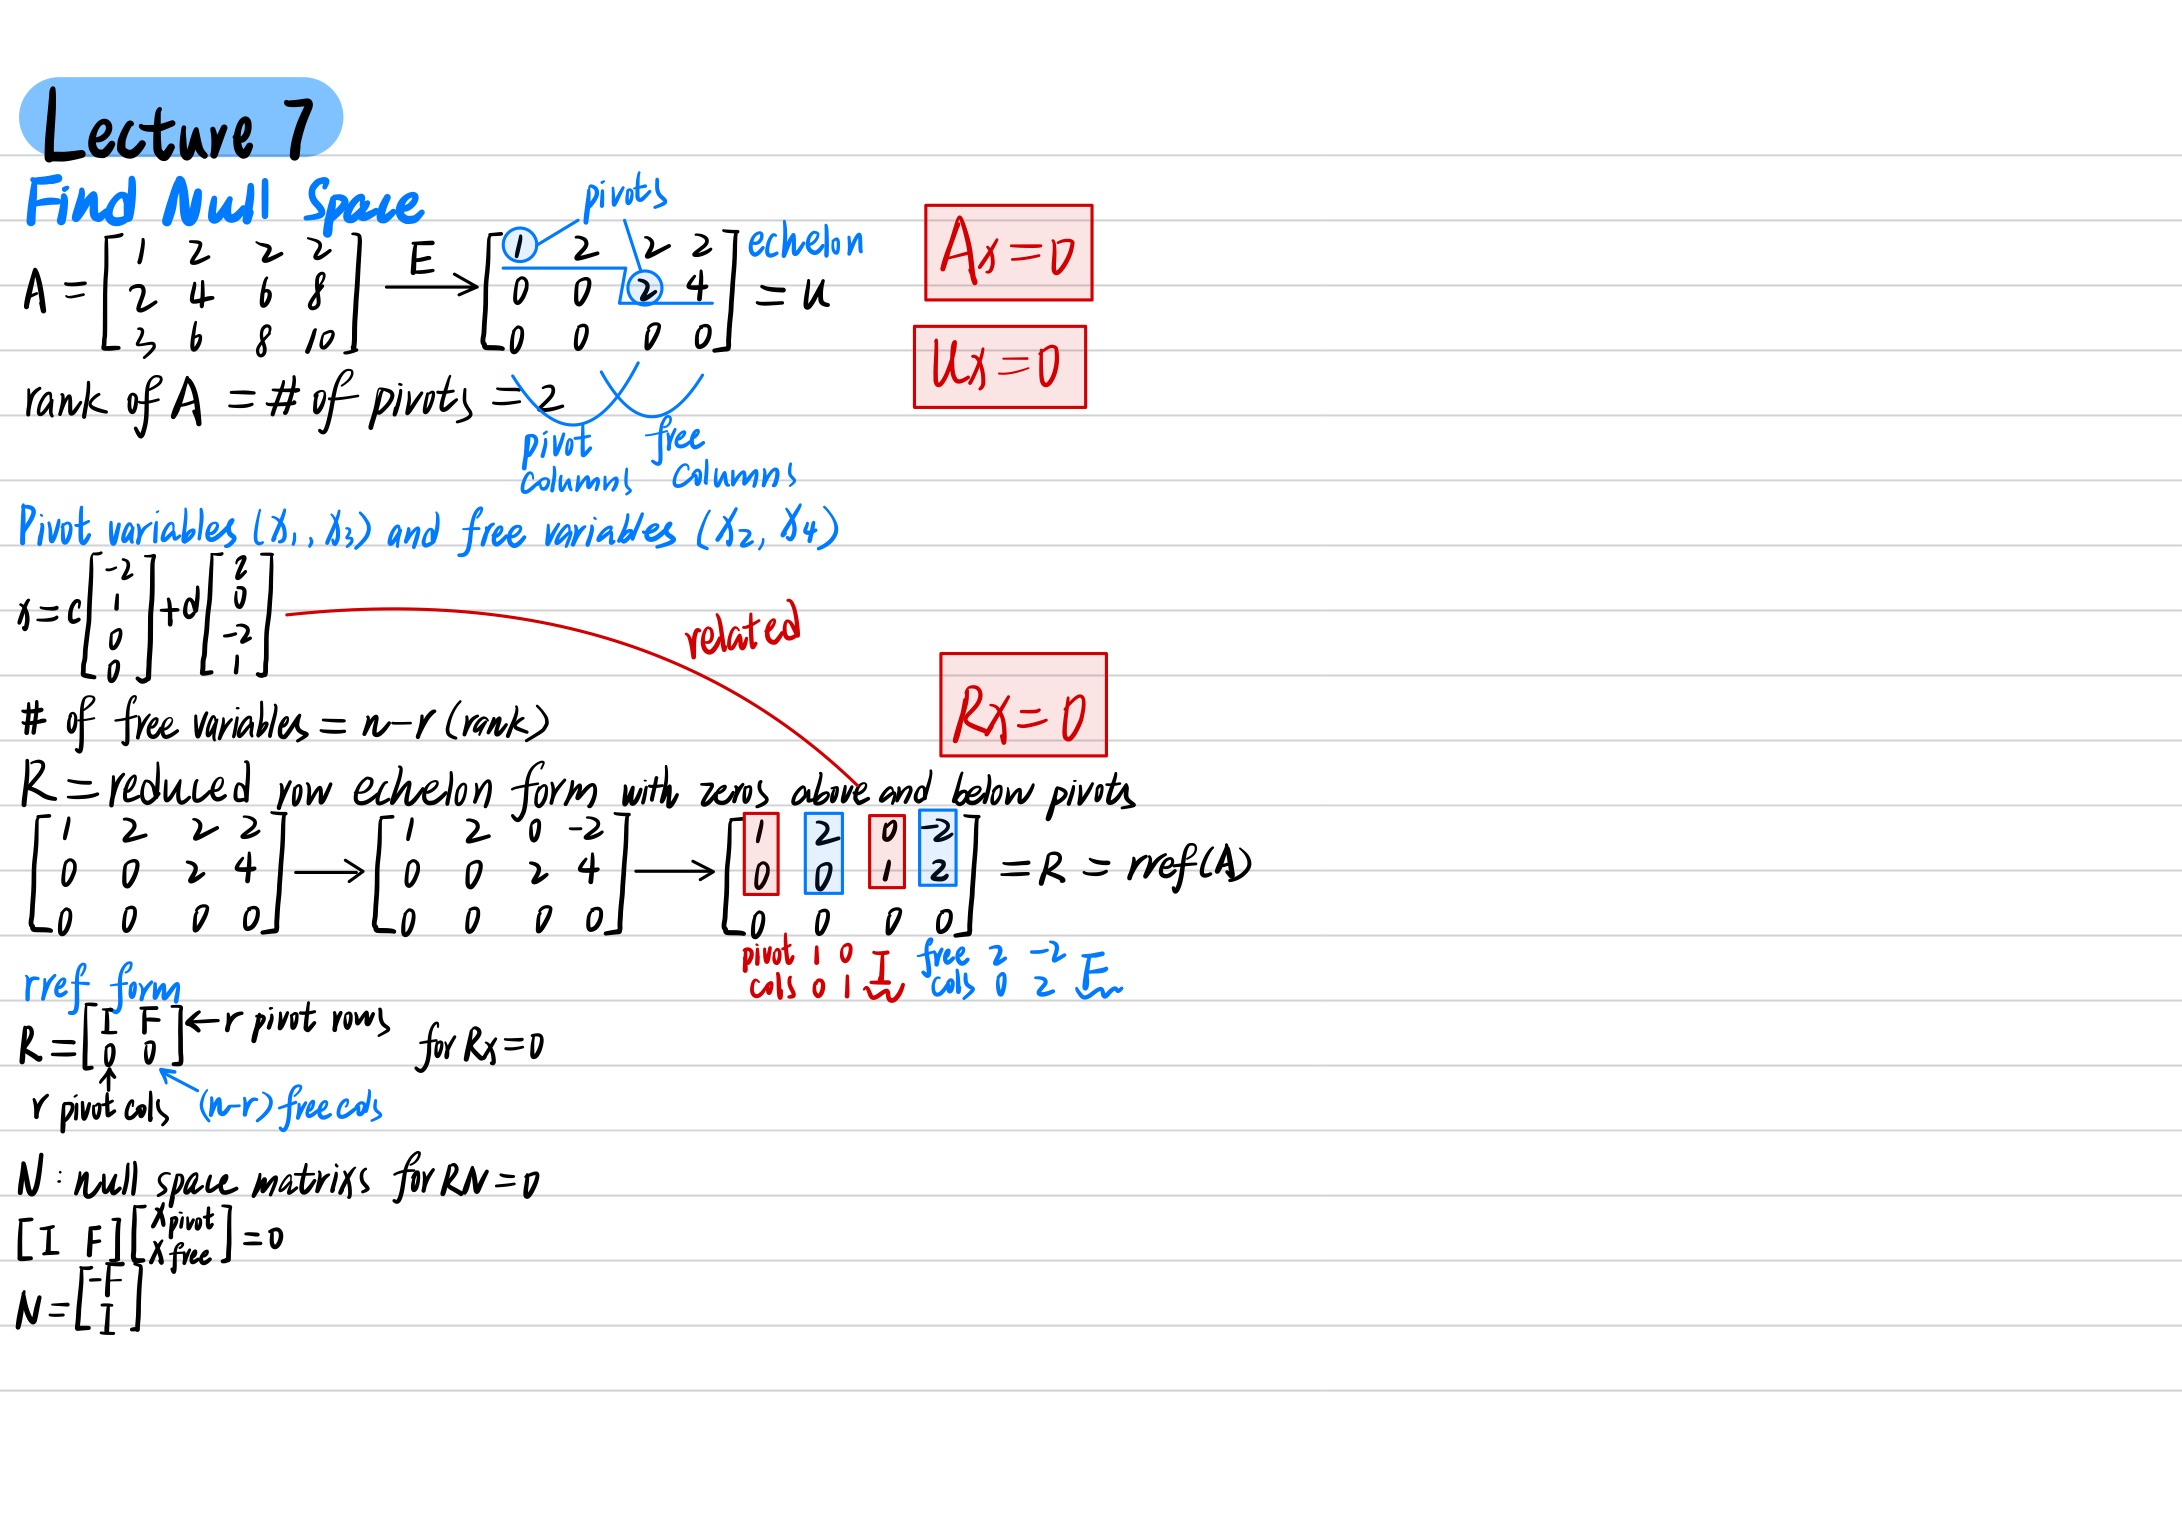 Lecture 7
Find Null Space
pivots
A = [1 2 2 2; 2 4 6 8; 3 6 8 10] E → [1 2 2 2; 0 0 2 4; 0 0 0 0] echelon = U
Ax=0
Ux=0
rank of A = # of pivots = 2
pivot columns
free columns
Pivot variables (x₁, x₃) and free variables (x₂, x₄)
x = c[-2; 1; 0; 0] + d[2; 0; -2; 1]
related
# of free variables = n-r (rank)
Rx=0
R = reduced row echelon form with zeros above and below pivots
[1 2 2 2; 0 0 2 4; 0 0 0 0] → [1 2 0 -2; 0 0 2 4; 0 0 0 0] → [1 2 0 -2; 0 0 1 2; 0 0 0 0] = R = rref(A)
pivot cols 1 0; 0 1 I
free cols 2 -2; 0 2 F
rref form
R = [I F; 0 0] ← r pivot rows for Rx=0
r pivot cols (n-r) free cols
N : null space matrixs for RN=0
[I F][xpivot; xfree] = 0
N = [-F; I]